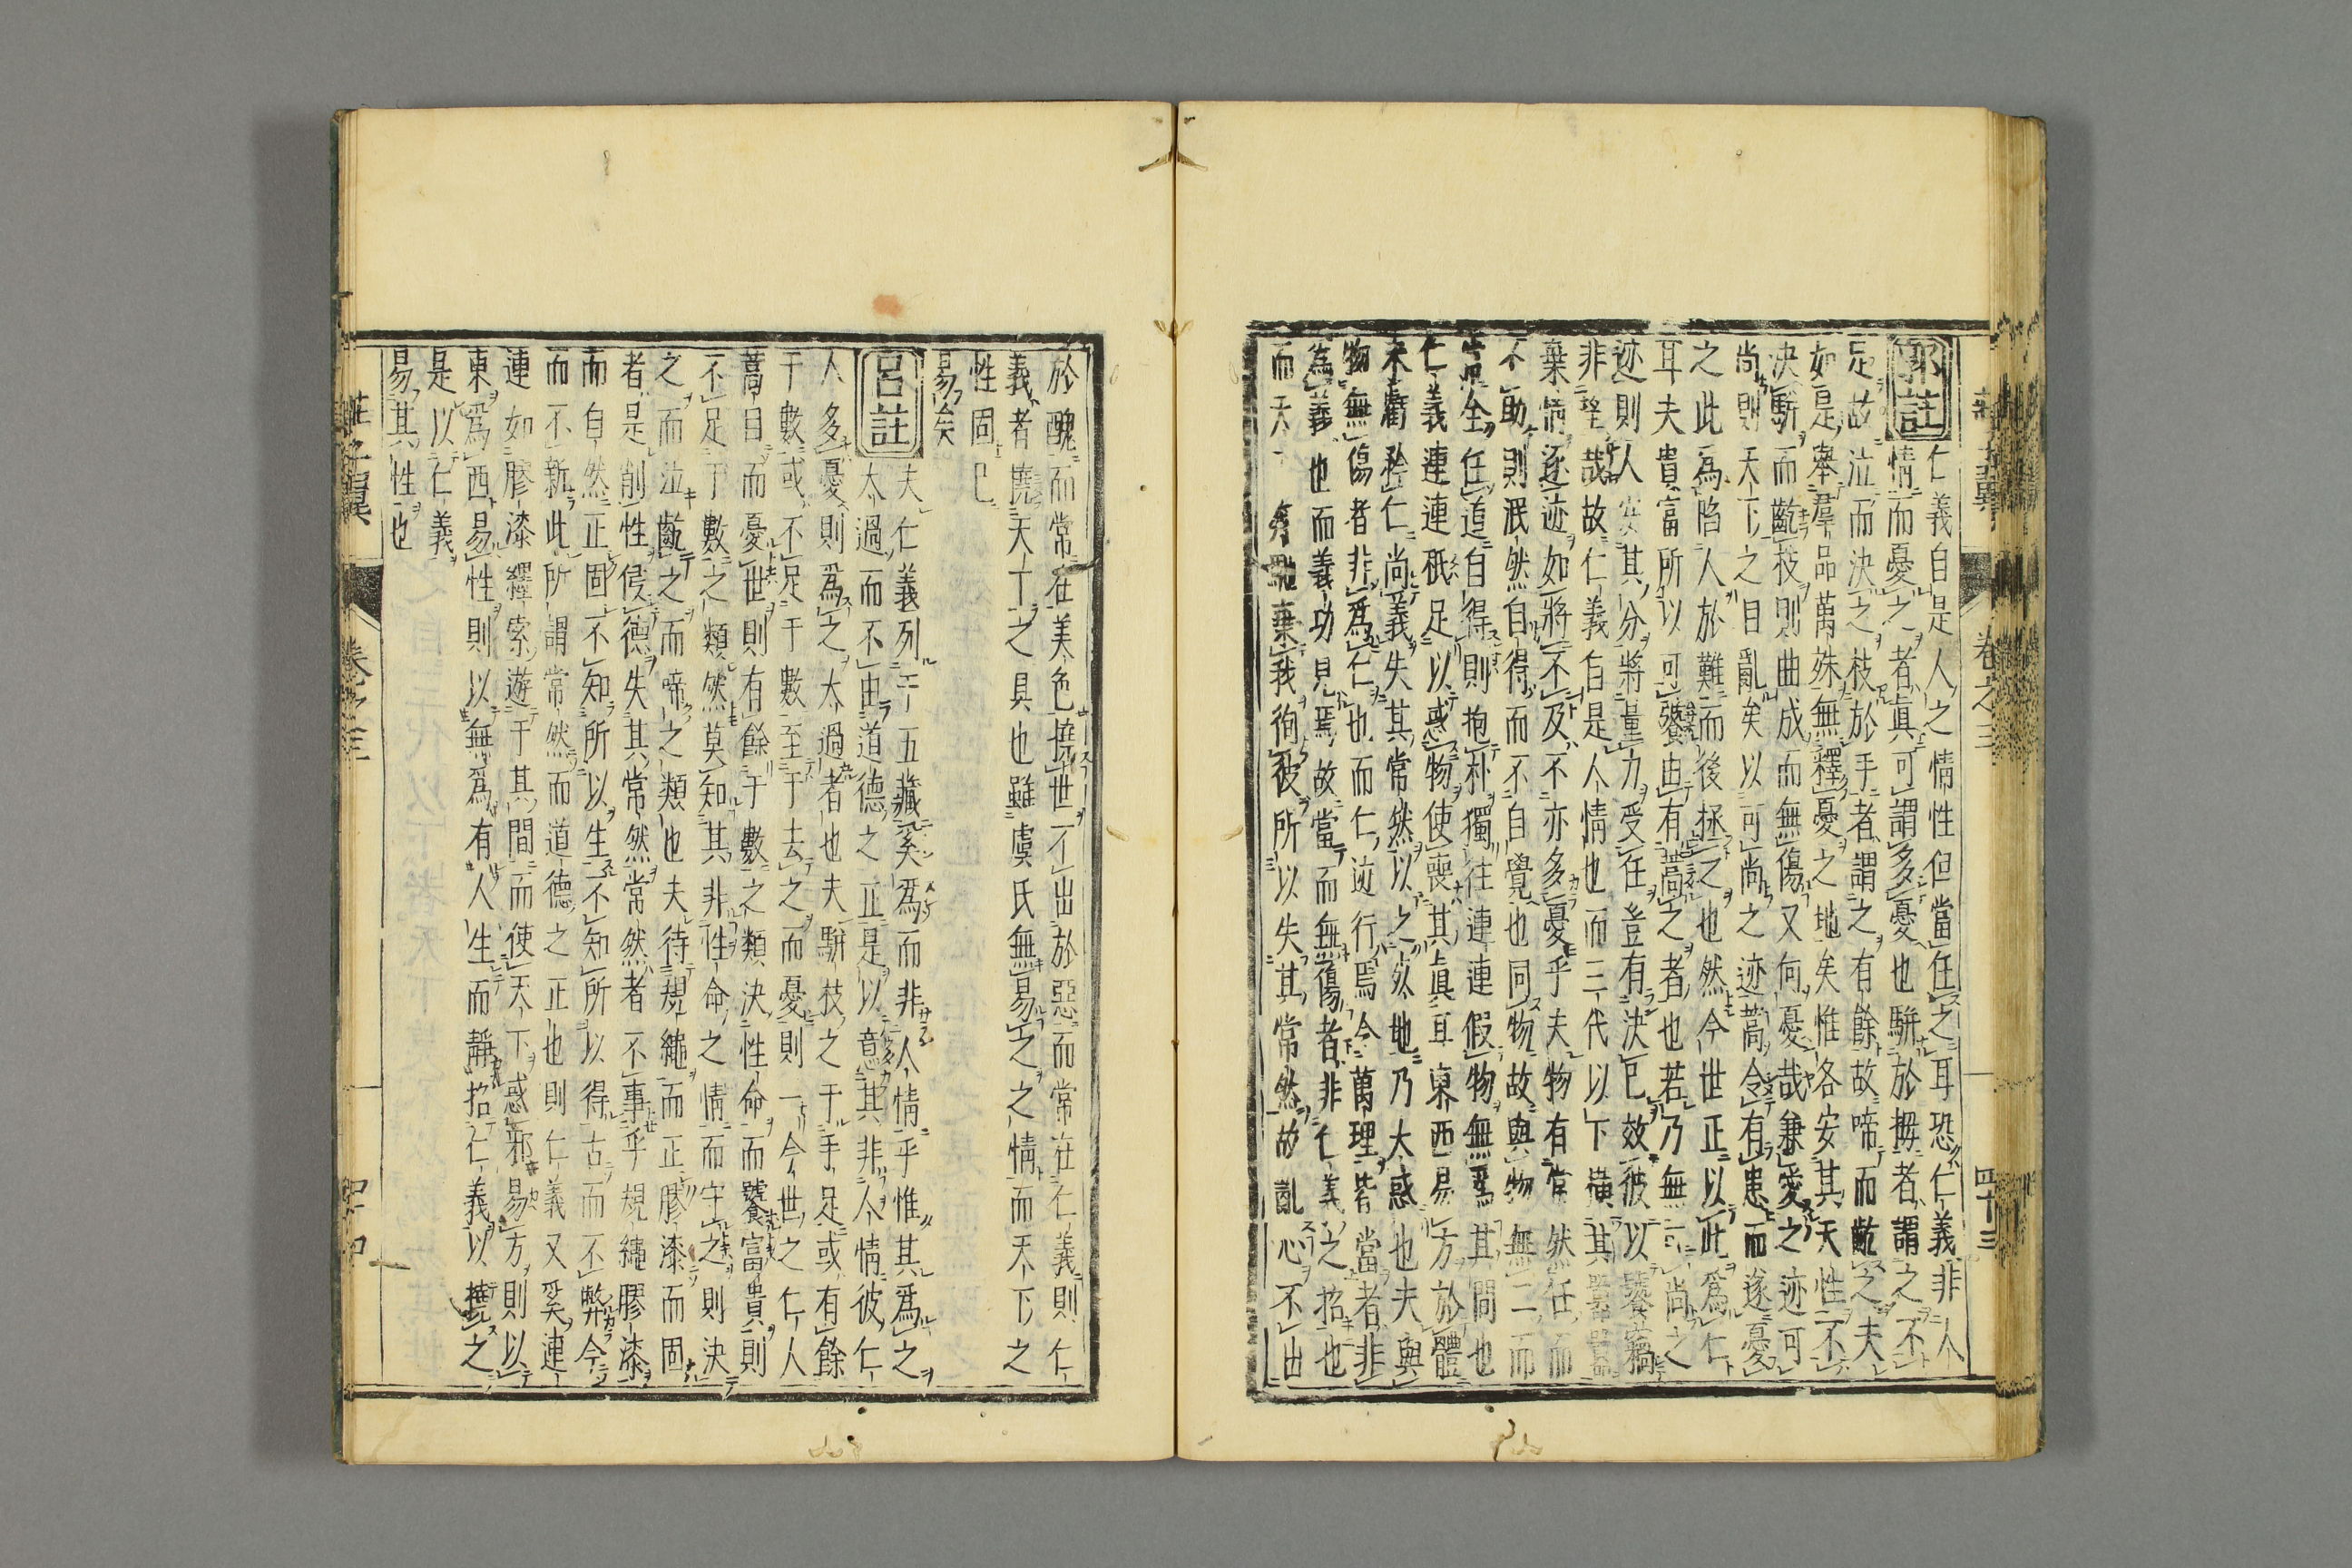 郭註
仁義自是人之情性但當任之耳恐仁義非人
情而憂之者眞可謂多憂也駢於拇者謂之不
足故泣而決之枝於手者謂之有餘故啼而齕之夫
如是舉羣品萬殊無釋憂之地矣惟各安其天性不
決駢而齕枝則曲成而無傷又何憂哉兼愛之迹可
尚則天下之目亂矣以可尚之迹蒿令有患而遂憂
之此爲陷人於難而後拯之也然今世正以此爲仁
耳夫貴富所以可饕由有蒿之者也若乃無可尚之
迹則人安其分將量力受任豈有決已效彼以饕竊
非望哉故仁義自是人情也而三代以下橫其囂囂
棄情逐迹如將不及不亦多憂乎夫物有常然任而
不助則泯然自得而不自覺也同物故與物無二而
常全任道自得則抱朴獨往連連假物無爲其間也
仁義連連祇足以惑物使喪其眞耳東西易方於體
未虧矜仁尚義失其常然以之死地乃大惑也夫與
物無傷者非爲仁也而仁迹行焉令萬理皆當者非
爲義也而義功見焉故當而無傷者非仁義之招也
而天下奔馳棄我徇彼所以失其常然故亂心不由
莊子翼 卷之三 四十三
於醜而常在美色撓世不出於惡而常在仁義則仁
義者撓天下之具也雖虞氏無易之之情而天下之
性固已
易矣
呂註
夫仁義列于五藏奚爲而非人情乎惟其爲之
太過而不由道德之正是以意其非人情彼仁
人多憂則爲之太過者也夫駢枝之于手足或有餘
于數或不足于數至于去之而憂則一今世之仁人
蒿目而憂世則有餘于數之類決性命而饕富貴則
不足于數之類然莫知其非性命之情而守之則決
之而泣齕之而啼之類也夫待規繩而正膠漆而固
者是削性侵德失其常然常然者不事乎規繩膠漆
而自然正固不知所以生不知所以得古而不弊今
而不新此所謂常然而道德之正也則仁義又奚連
連如膠漆纆索遊于其間而使天下惑邪易方則以
東爲西易性則以無爲有人生而靜招仁義以撓之
是以仁義
易其性也
莊子翼 卷之三